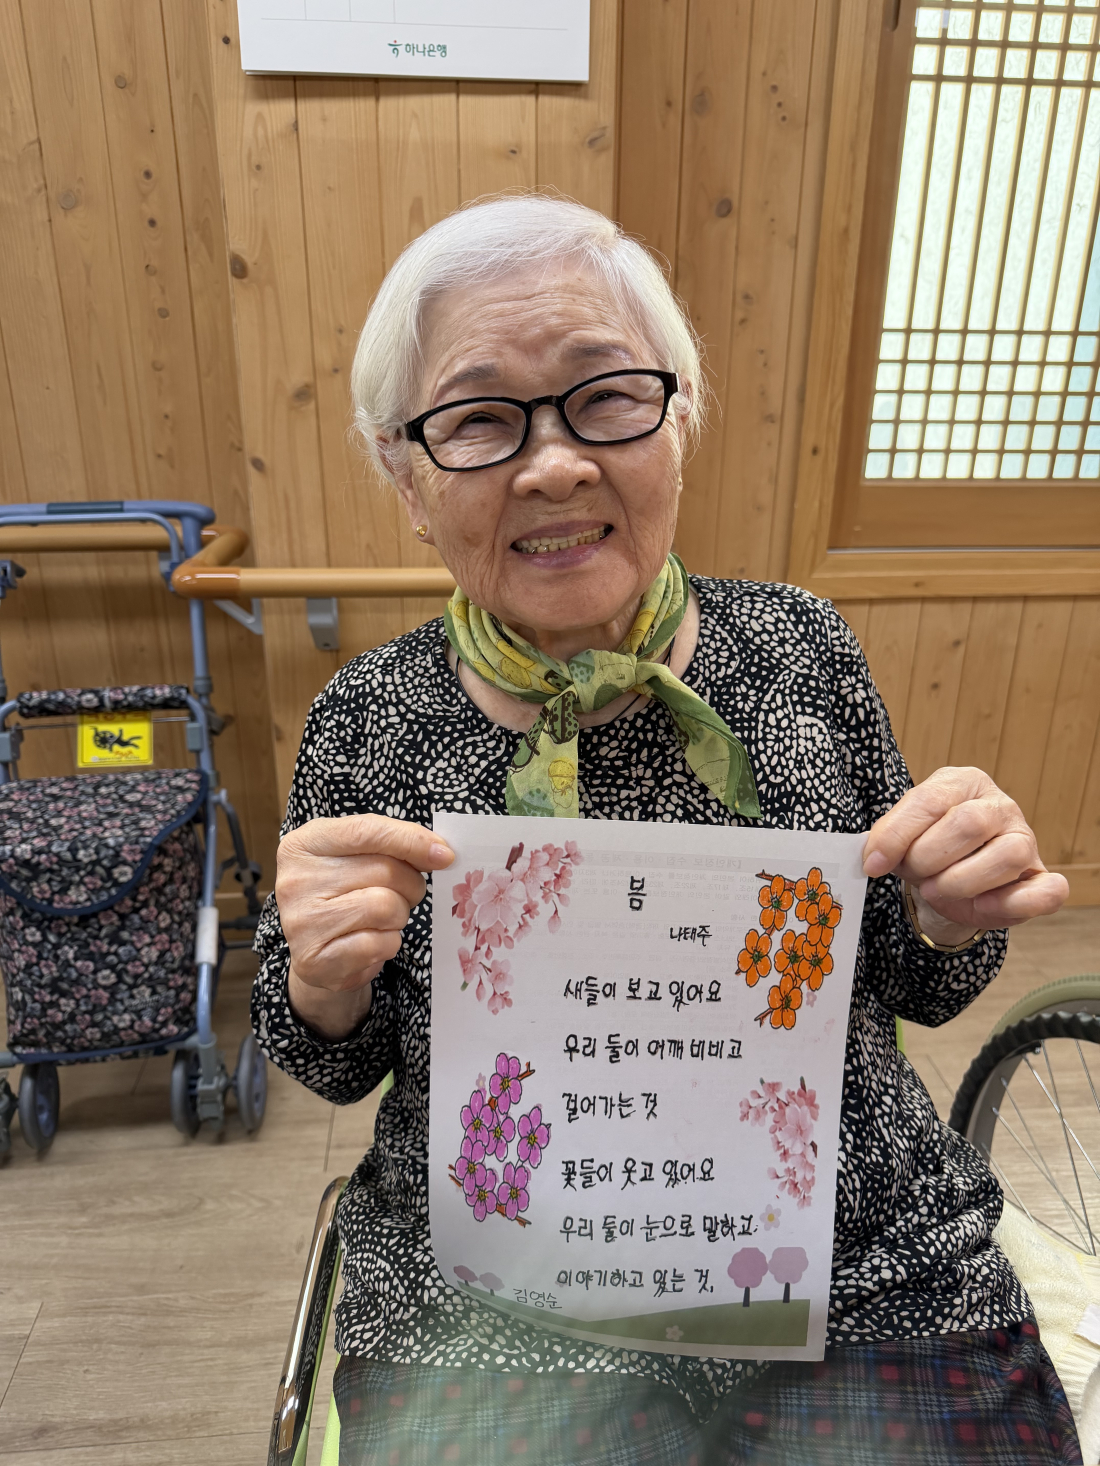 하나은행
봄
나태주
새들이 보고 있어요
우리 둘이 어깨 비비고
걸어가는 것
꽃들이 웃고 있어요
우리 둘이 눈으로 말하고
이야기하고 있는 것.
김영순